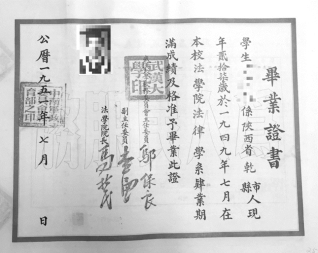 畢業證書
學生 係陝西省乾縣市人現
年貳拾柒歲於一九四九年七月在
本校法學院法律學系肆業期
滿成績及格准予畢業此證
主任委員 鄔保良
副主任委員 查謙
法學院院長
公曆一九五一年七月 日
武漢大學印